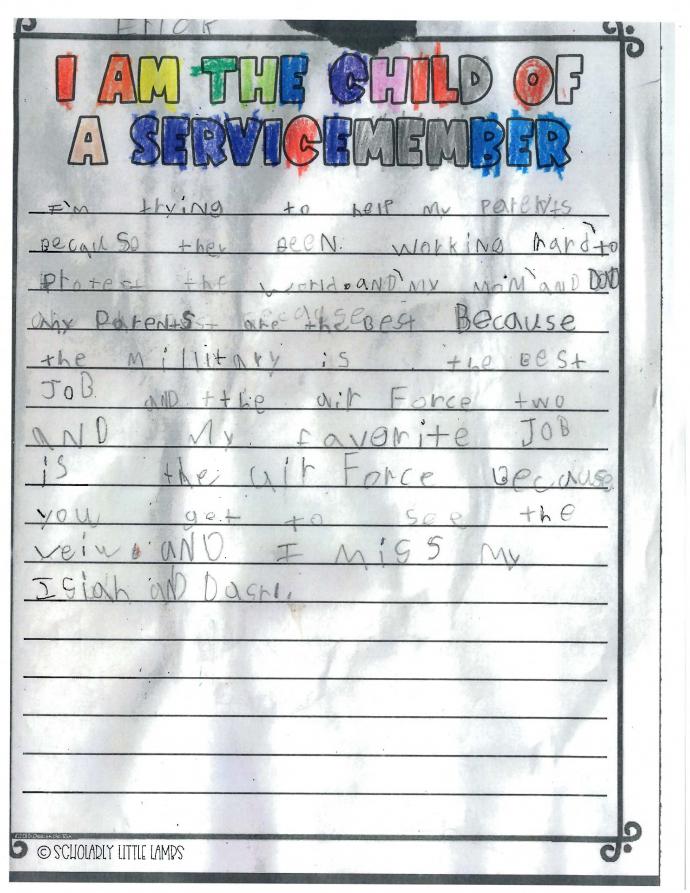 Erick
I AM THE CHILD OF
A SERVICEMEMBER
I'm trying to help my parents
Because they BEEN working hard to
Protest the world. AND my MOM AND DAD
my Parents are the Best Because
the millitary is the BEST
JOB AND tthe air Force two
AND My favorite JOB
is the air Force Because
you get to see the
veiw. AND I MISS My
Isiah AND
© SCHOLARLY LITTLE LAMBS